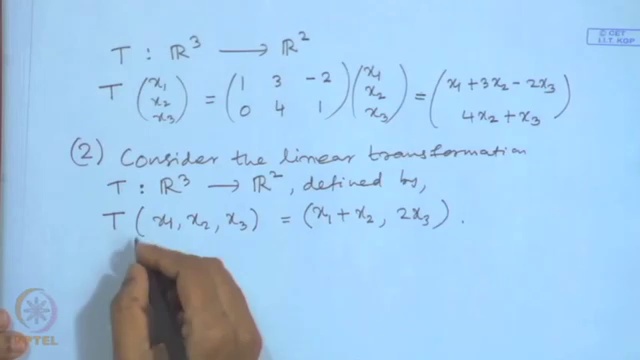 © CET
I.I.T. KGP
T : ℝ³ ⟶ ℝ²
T (x₁ x₂ x₃) = (1 3 -2 0 4 1) (x₁ x₂ x₃) = (x₁ + 3x₂ - 2x₃ 4x₂ + x₃)
(2) Consider the linear transformation
T : ℝ³ ⟶ ℝ², defined by,
T (x₁, x₂, x₃) = (x₁ + x₂, 2x₃).
NPTEL